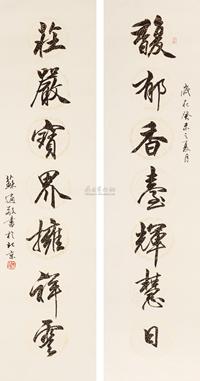 馥郁香臺輝慧日
歲在癸未之夏月
莊嚴寶界擁祥雲
蘇適敬書於北京